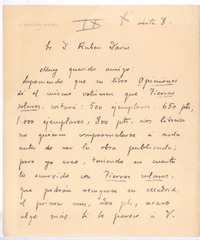 IX X
Sr. D. Rubén Darío
Muy querido amigo:
Suponiendo que su libro Opiniones
del mismo volumen que Tierras
solares, costará: 500 ejemplares: 650 pts,
1.000 ejemplares: 800 pts. Los libreros
no quieren comprometerse a nada
antes de ver la obra publicada;
pero yo creo, teniendo en cuenta
lo sucedido con Tierras solares,
que podrán recogerse en Madrid,
el primer mes, 200 pts, acaso
algo más. Si le parece a V.